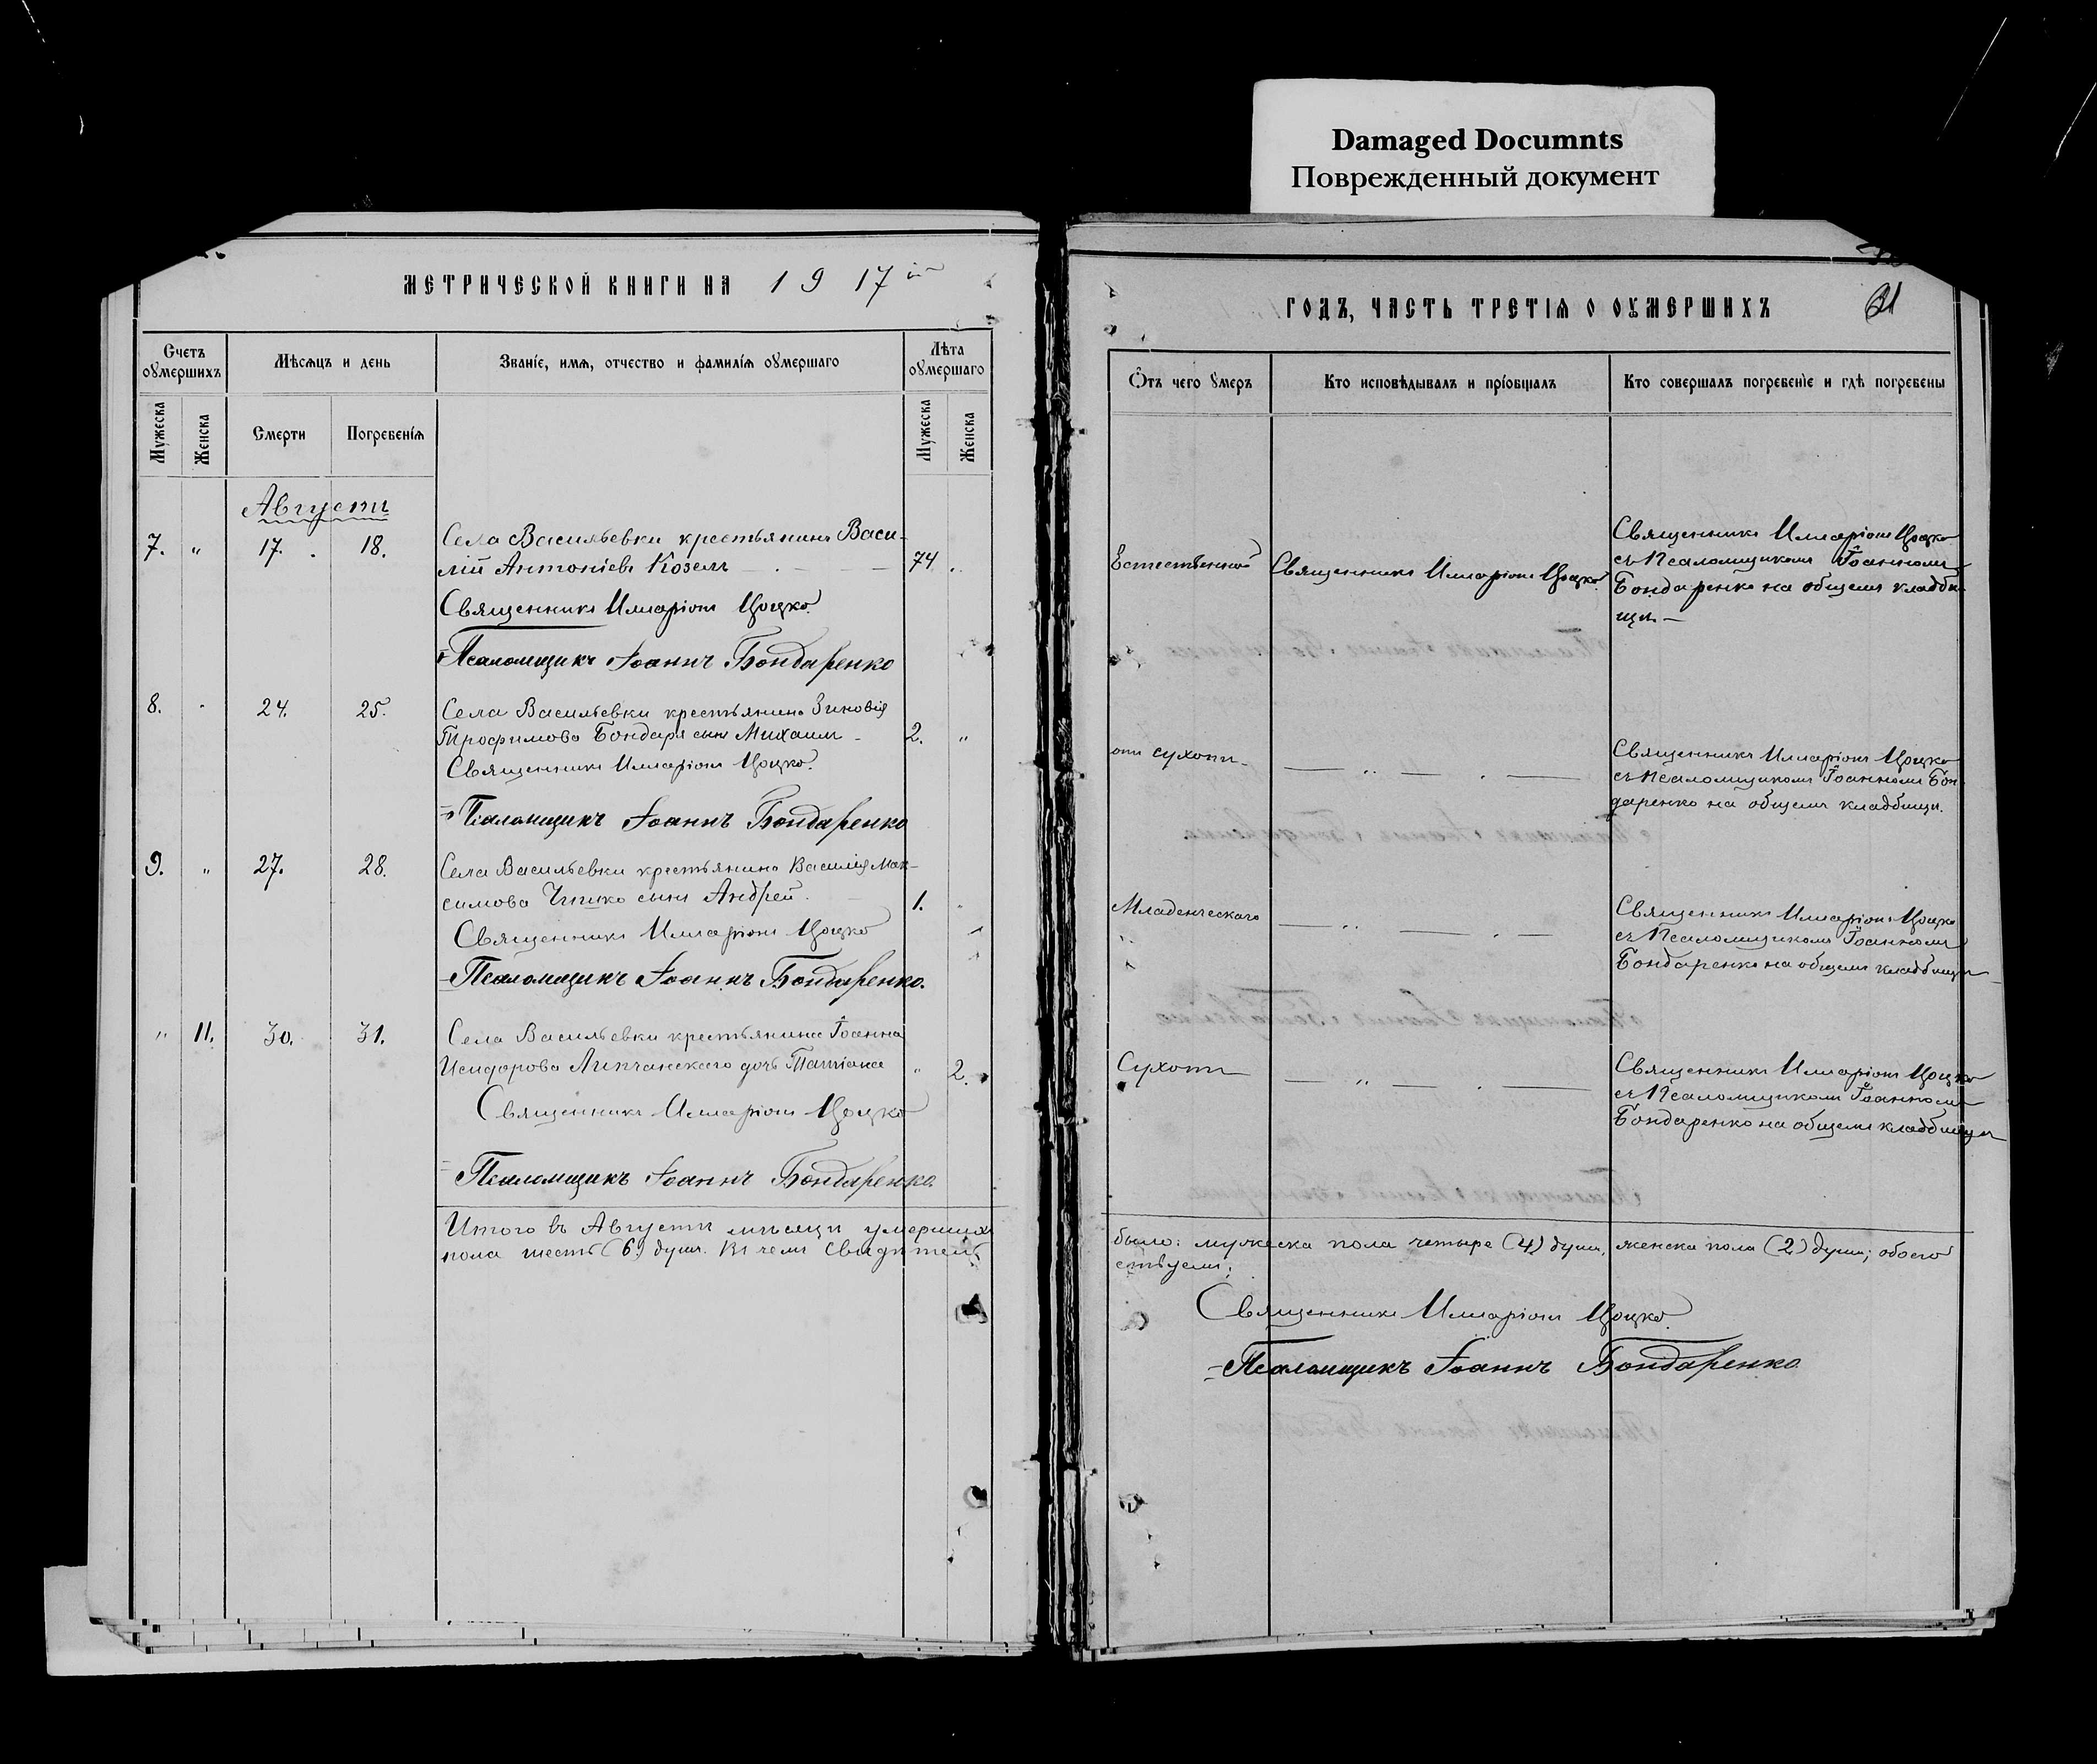 Damaged Documnts
Поврежденный документ
МЕТРИЧЕСКОЙ КНИГИ НА 1917
Счетъ оумершихъ
Мѣсяцъ и день
Званіе, имя, отчество и фамилія оумершаго
Лѣта оумершаго
Мужеска
Женска
Смерти
Погребенія
Мужеска
Женска
Августъ
7. " 17. 18. Села Васильевки крестьянинъ Васи-
лій Антоніевъ Козелъ 74
Священникъ Илларіонъ Цоцко
Псаломщикъ Іоаннъ Бондаренко
8. 24. 25. Села Васильевки крестьянина Зиновія
Трофимова Бондаря сынъ Михаилъ 2. "
Священникъ Илларіонъ Цоцко.
Псаломщикъ Іоаннъ Бондаренко
9. " 27. 28. Села Васильевки крестьянина Василія Мак-
симова сынъ Андрей 1.
Священникъ Илларіонъ Цоцко
Псаломщикъ Іоаннъ Бондаренко.
" 11. 30. 31. Села Васильевки крестьянина Іоанна
Исидорова Липчанскаго дочь Татіана " 2.
Священникъ Илларіонъ Цоцко
Псаломщикъ Іоаннъ Бондаренко.
Итого въ Августѣ мѣсяцѣ умершихъ
пола шесть (6) душъ. Въ чемъ свидѣтель
ГОДЪ, ЧАСТЬ ТРЕТІЯ О ОУМЕРШИХЪ
Ѿтъ чего умеръ
Кто исповѣдывалъ и пріобщалъ
Кто совершалъ погребеніе и гдѣ погребены
Естественной Священникъ Илларіонъ Цоцко.
Священникъ Илларіонъ Цоцко
съ Псаломщикомъ Іоанномъ
Бондаренко на общемъ кладби-
щѣ. —
отъ сухотъ — " — . —
Священникъ Илларіонъ Цоцко
съ Псаломщикомъ Іоанномъ Бон-
даренко на общемъ кладбищѣ.
Младенческаго — " — . —
Священникъ Илларіонъ Цоцко
съ Псаломщикомъ Іоанномъ
Бондаренко на общемъ кладбищѣ
Сухотъ — " — . —
Священникъ Илларіонъ Цоцко
съ Псаломщикомъ Іоанномъ
Бондаренко на общемъ кладбищѣ
было: мужеска пола четыре (4) душъ, женска пола (2) душъ; обоего
ствуемъ:
Священникъ Илларіонъ Цоцко.
Псаломщикъ Іоаннъ Бондаренко